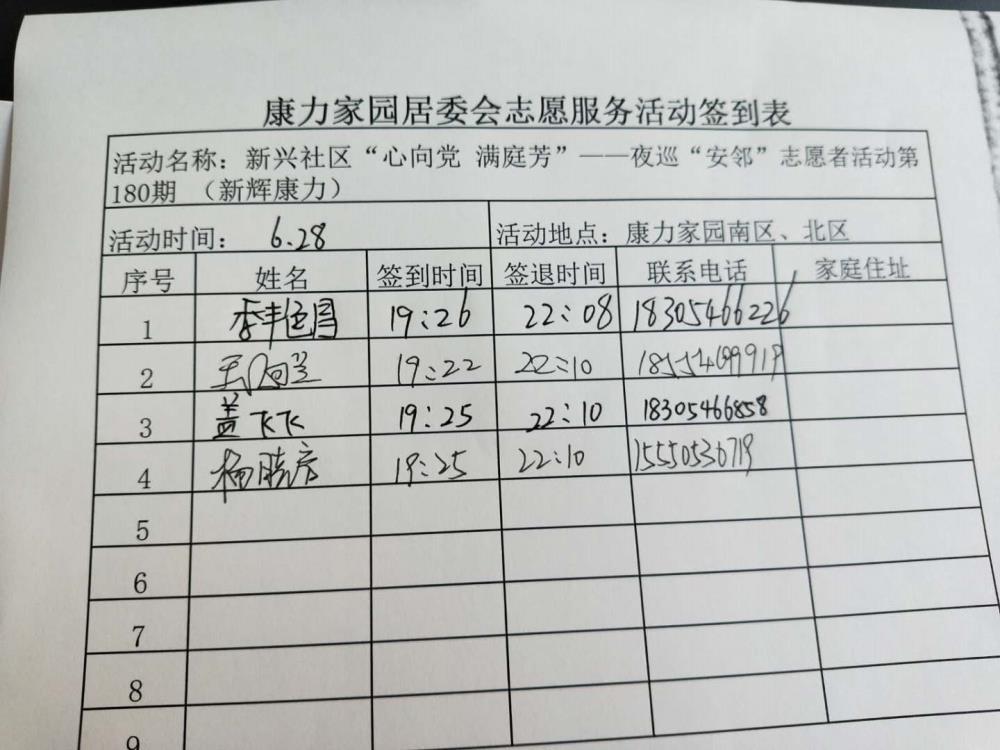 康力家园居委会志愿服务活动签到表
活动名称：新兴社区“心向党 满庭芳”——夜巡“安邻”志愿者活动第
180期 （新辉康力）
活动时间： 6.28 活动地点：康力家园南区、北区
序号 姓名 签到时间 签退时间 联系电话 家庭住址
1 19:26 22:08 18305466226
2 19:22 22:10
3 盖飞飞 19:25 22:10 18305466858
4 杨晓彦 19:25 22:10 15550536719
5
6
7
8
9